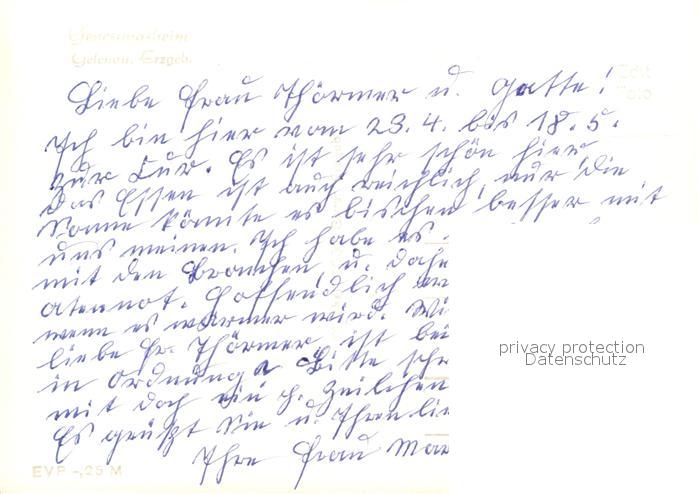 Genesungsheim
Gelenau, Erzgeb.
Liebe Frau Thörmer u. Gatte!
Ich bin hier vom 23.4. bis 18.5.
zur Kur. Es ist sehr schön hier
das Essen ist auch reichlich, nur die
Sonne könnte es bischen besser mit
uns meinen. Ich habe es
mit den Bronchen u. daher
atemnot. Hoffendlich
wenn es wärmer wird.
liebe Fr. Thörmer ist bei
in Ordnung? Bitte
mit doch ein p. Zeilchen
Es grüßt Sie u. Ihren
Ihre Frau
EVP -,25 M
privacy protection
Datenschutz